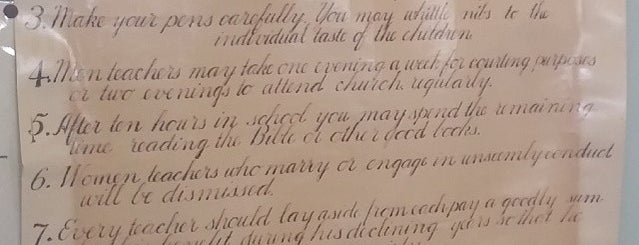 3. Make your pens carefully. You may whittle nibs to the
individual taste of the children.
4. Men teachers may take one evening a week for courting purposes
or two evenings to attend church regularly.
5. After ten hours in school you may spend the remaining
time reading the Bible or other good books.
6. Women teachers who marry or engage in unseemly conduct
will be dismissed.
7. Every teacher should lay aside from each pay a goodly sum
during his declining years so that he